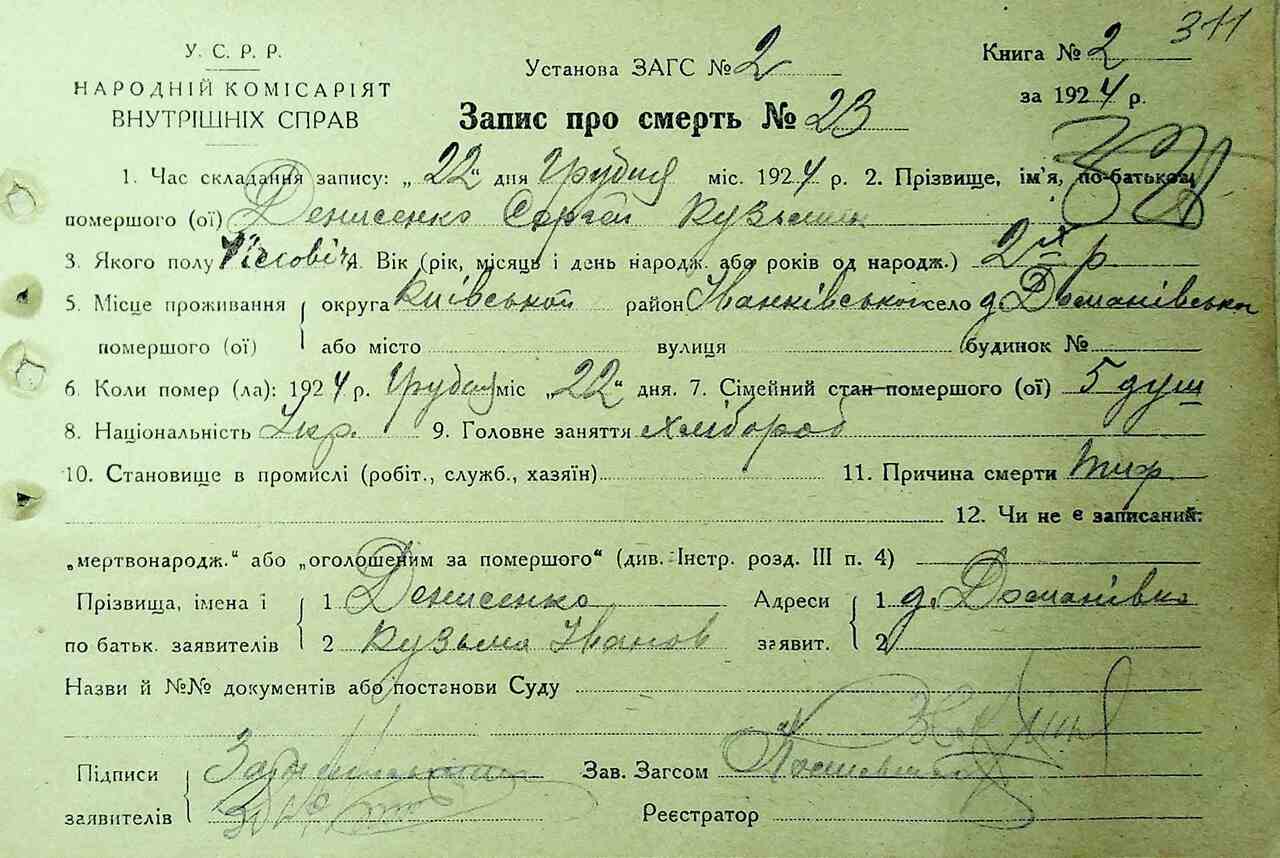 311
У. С. Р. Р.
НАРОДНІЙ КОМІСАРІЯТ
ВНУТРІШНІХ СПРАВ
Установа ЗАГС № 2
Книга № 2
за 1924 р.
Запис про смерть № 23
1. Час складання запису: „22" дня Грудня міс. 1924 р. 2. Прізвище, ім'я, по-батькові
помершого (ої) Денисенко Сергій Кузьмин
3. Якого полу 4. Вік (рік, місяць і день народж. або років од народж.) 2 р
5. Місце проживання округа Київської район Іванківського село д. Доманівська
помершого (ої) або місто вулиця будинок №
6. Коли помер (ла): 1924 р. Грудня міс „22" дня. 7. Сімейний стан помершого (ої) 5 душ
8. Національність Укр. 9. Головне заняття хлібороб
10. Становище в промислі (робіт., служб., хазяїн) 11. Причина смерти тиф
12. Чи не є записаний:
„мертвонародж." або „оголошеним за помершого" (див. Інстр. розд. III п. 4)
Прізвища, імена і 1 Денисенко Адреси 1 д. Доманівка
по батьк. заявителів 2 Кузьма Іванов заявит. 2
Назви й №№ документів або постанови Суду
Підписи Зав. Загсом
заявителів Реєстратор